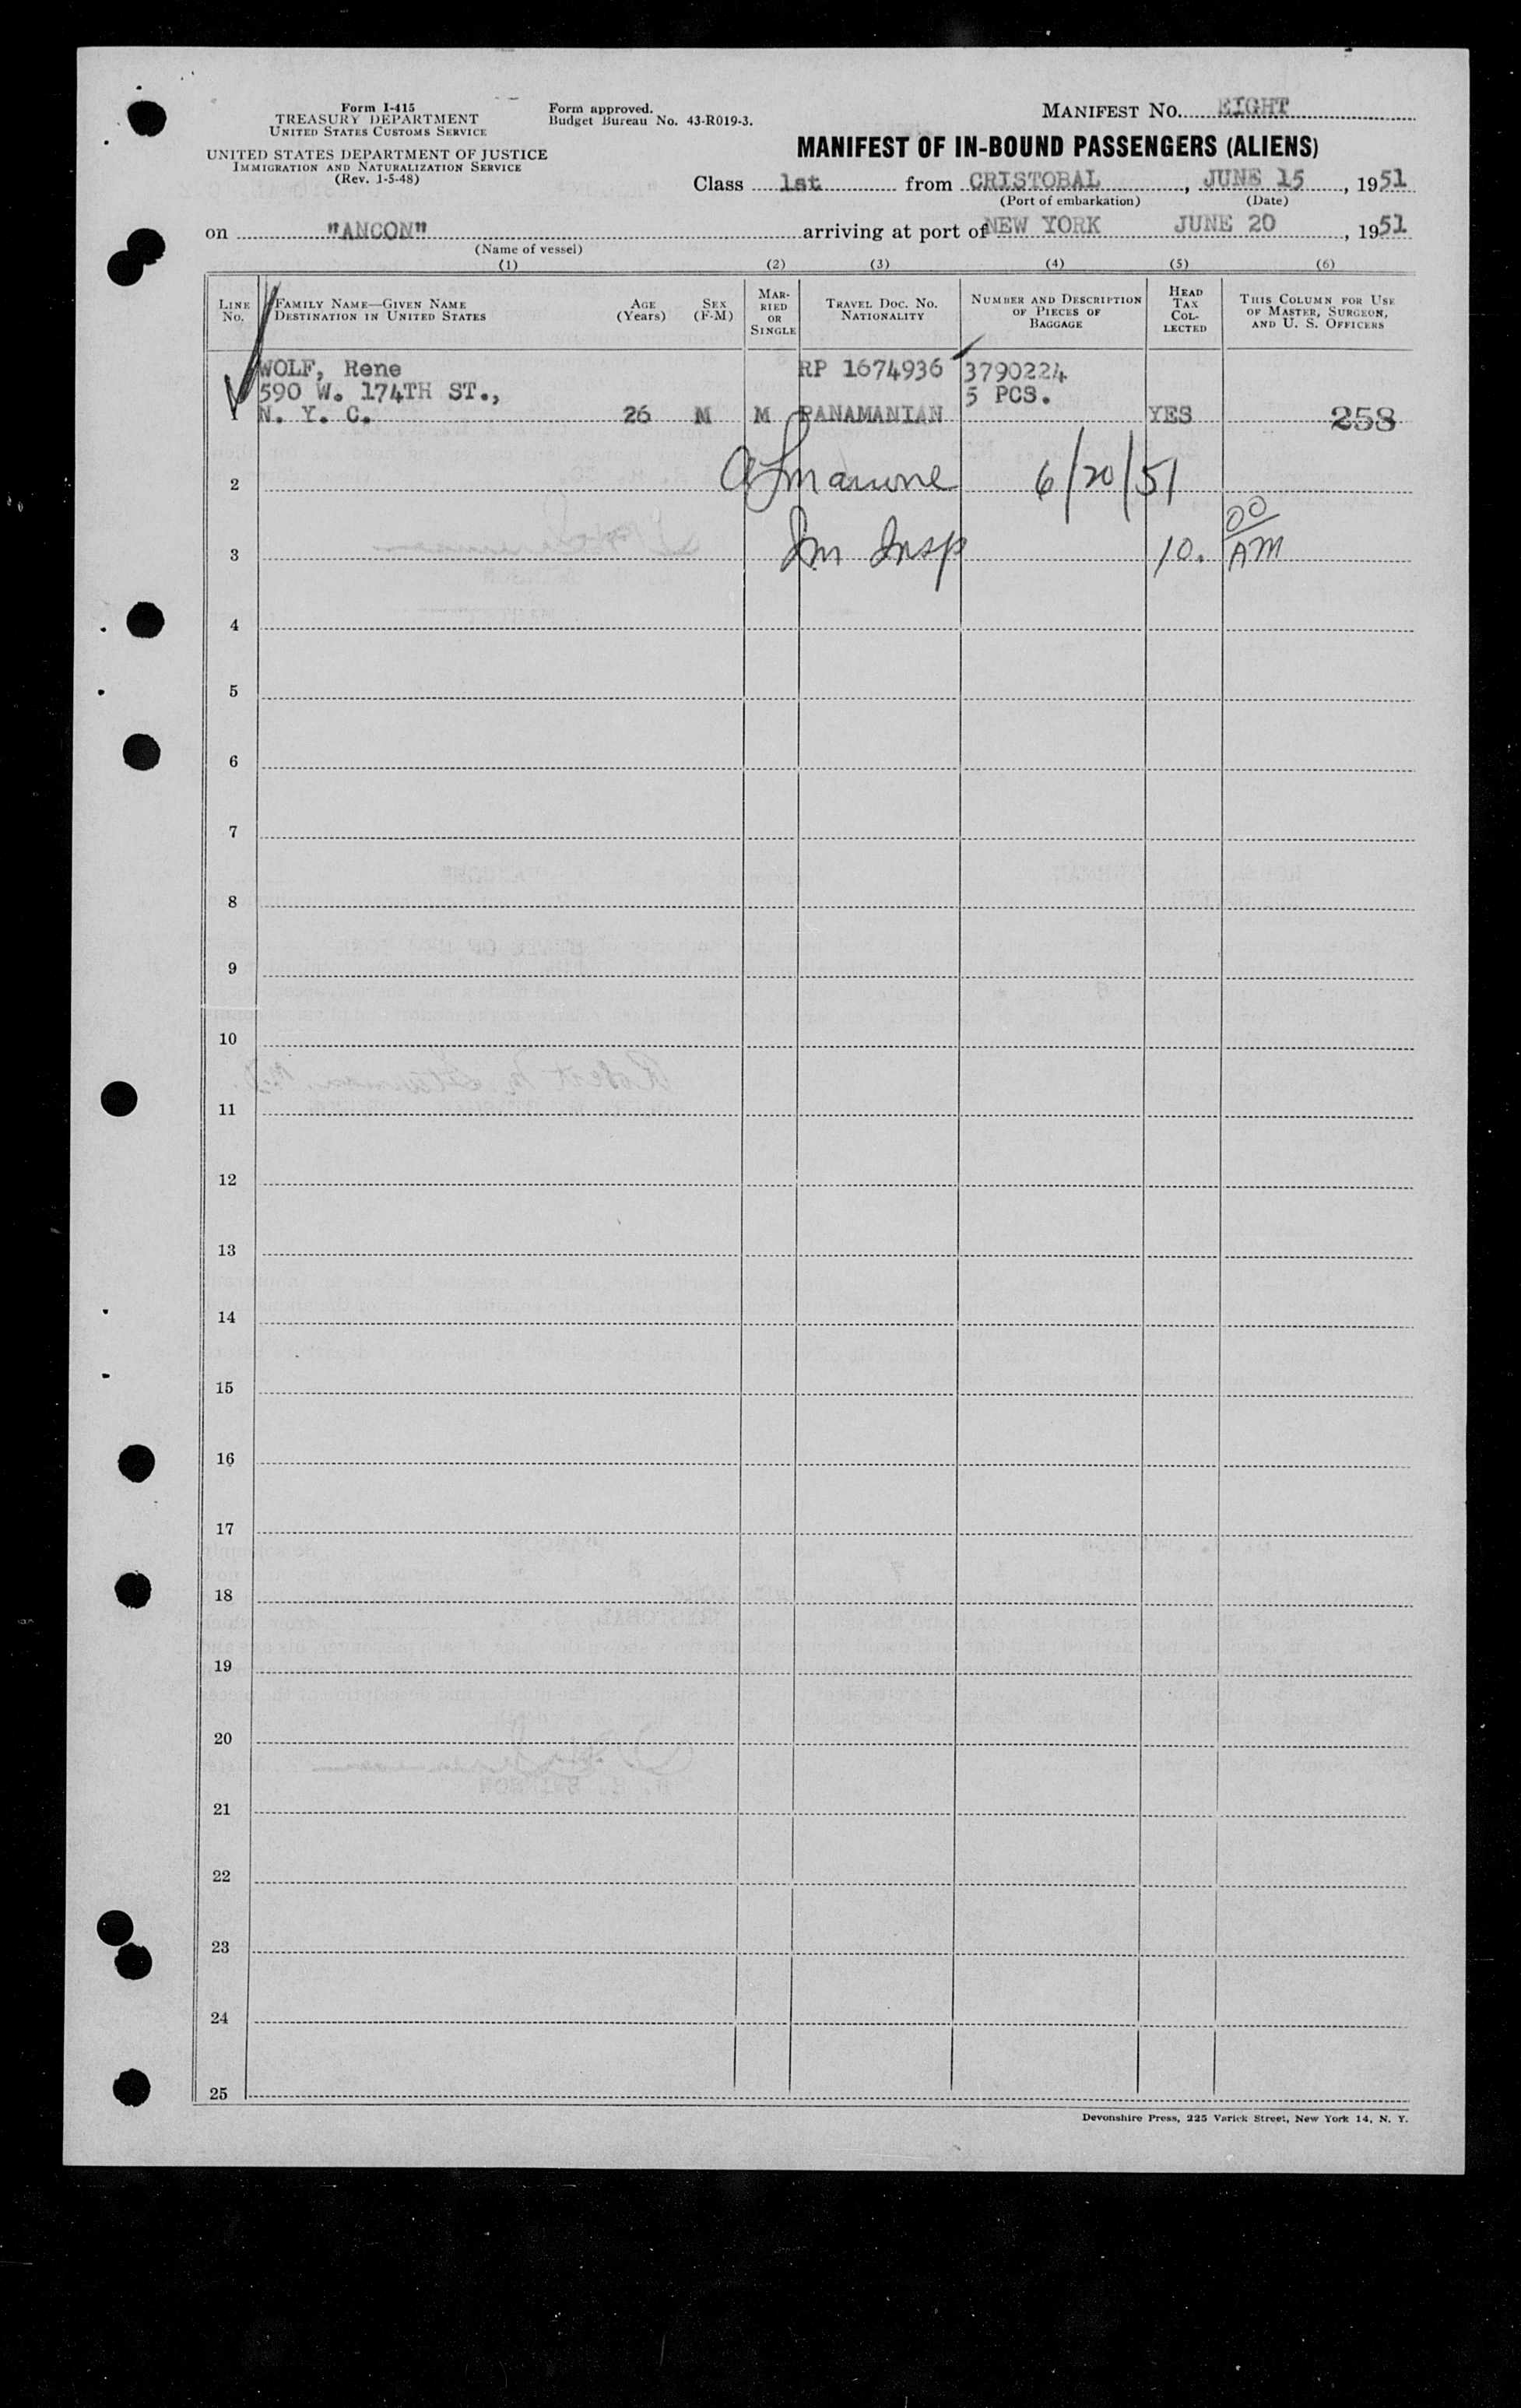 Form I-415
TREASURY DEPARTMENT
UNITED STATES CUSTOMS SERVICE
UNITED STATES DEPARTMENT OF JUSTICE
IMMIGRATION AND NATURALIZATION SERVICE
(Rev. 1-5-48)
Form approved.
Budget Bureau No. 43-R019-3.
MANIFEST NO. EIGHT
MANIFEST OF IN-BOUND PASSENGERS (ALIENS)
Class 1st from CRISTOBAL, JUNE 15, 1951
(Port of embarkation) (Date)
on "ANCON" arriving at port of NEW YORK JUNE 20, 1951
(Name of vessel)
(1) (2) (3) (4) (5) (6)
LINE NO.
FAMILY NAME—GIVEN NAME
DESTINATION IN UNITED STATES
AGE (Years)
SEX (F-M)
MARRIED OR SINGLE
TRAVEL DOC. NO.
NATIONALITY
NUMBER AND DESCRIPTION OF PIECES OF BAGGAGE
HEAD TAX COLLECTED
THIS COLUMN FOR USE OF MASTER, SURGEON, AND U. S. OFFICERS
WOLF, Rene RP 1674936 3790224
590 W. 174TH ST., 5 PCS.
1 N. Y. C. 26 M M PANAMANIAN YES 258
2 6/20/51
3 Im Insp 10.00 AM
4
5
6
7
8
9
10
11
12
13
14
15
16
17
18
19
20
21
22
23
24
25
Devonshire Press, 225 Varick Street, New York 14, N. Y.